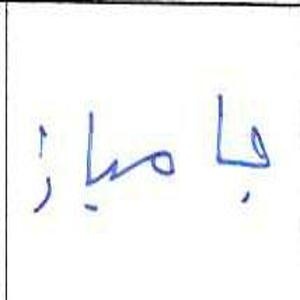 جا مباز